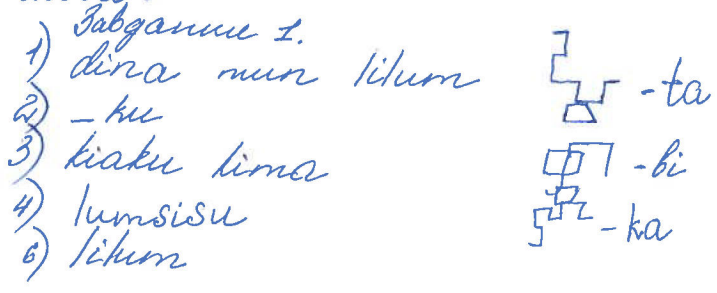 Завдання 1.
1) dina nun lilum
2) - ku
3) kiaku lima
4) lumsisu
6) lilum
-ta
-bi
-ka